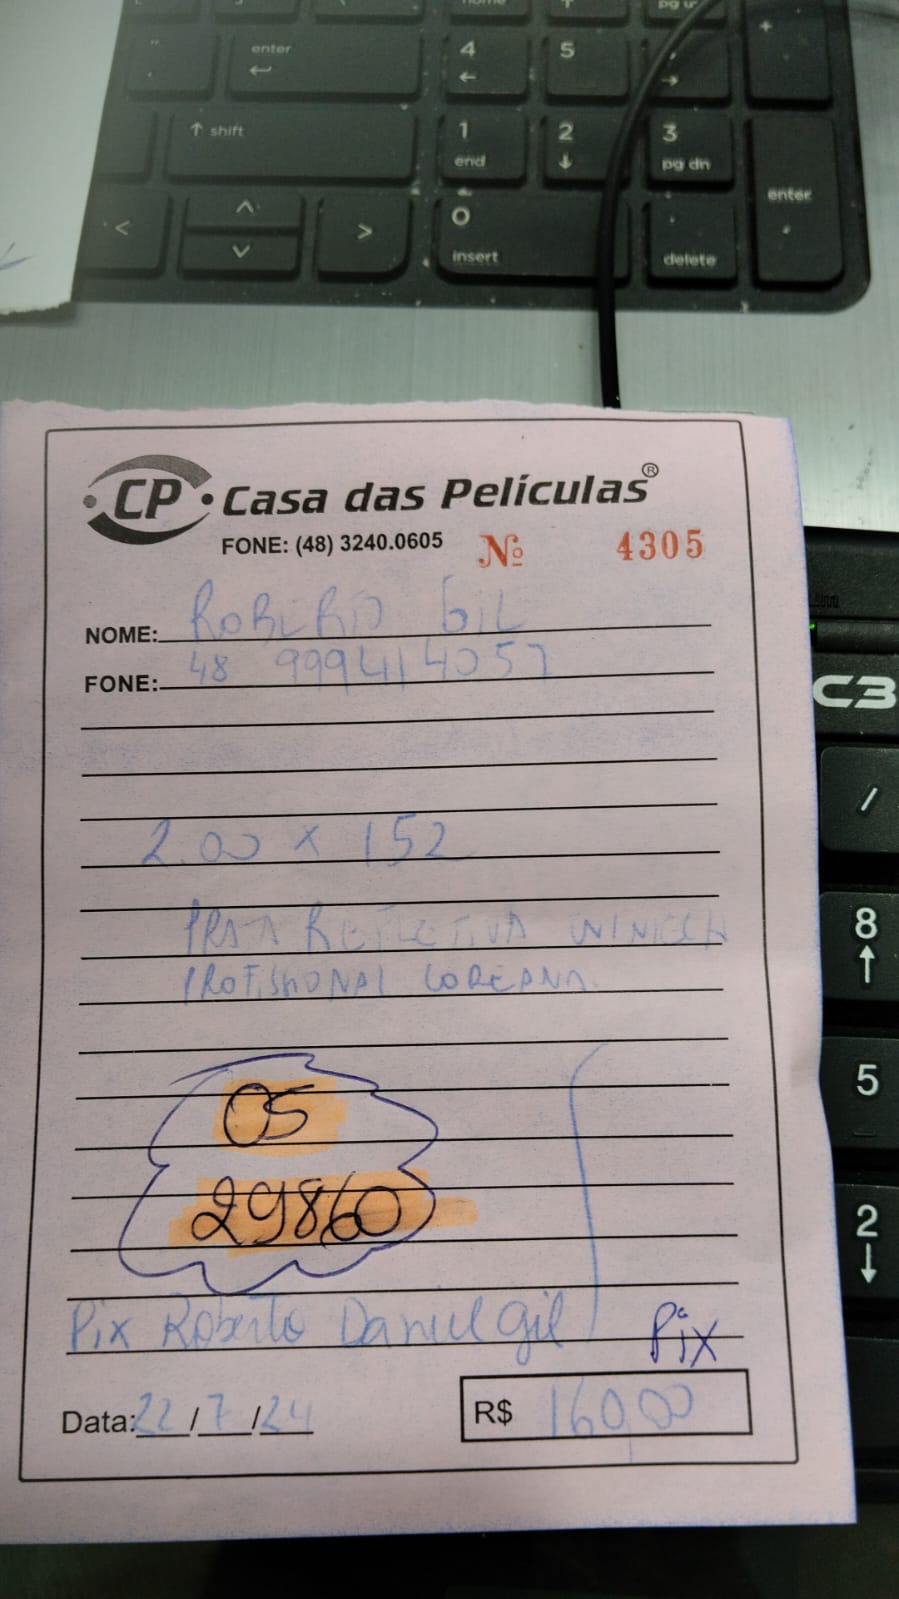 home
pg up
"
'
enter
4
5
+
↑ shift
1
end
2
3
pg dn
enter
0
insert
.
delete
CP Casa das Películas®
FONE: (48) 3240.0605 Nº 4305
NOME: ROBERTO GIL
FONE: 48 999414057
2.00 x 152
PRATA REFLETIVA
PROFISSIONAL COREANA
OS
29860
Pix Roberto Daniel gil Pix
Data: 22/7/24 R$ 160,00
C3
/
8
5
2